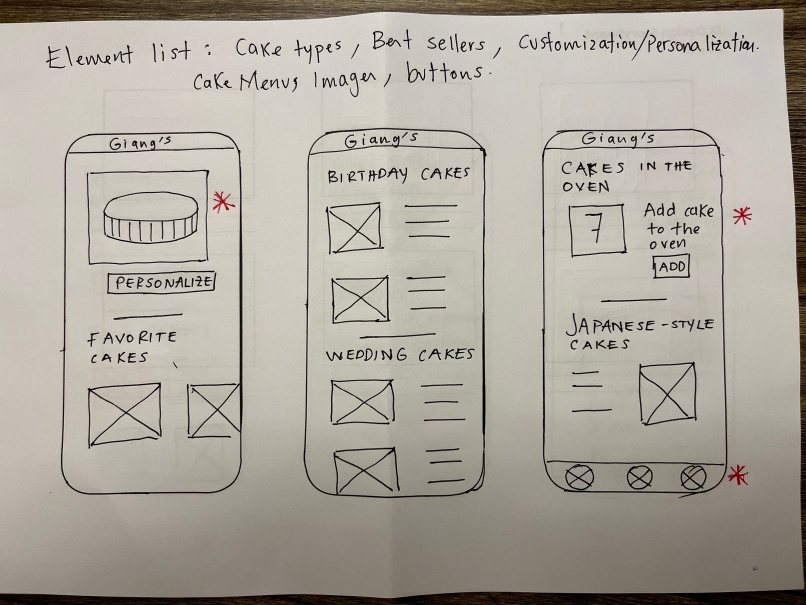 Element list: Cake types, Best sellers, Customization/Personalization.
Cake Menus, Images, buttons.
Giang's
PERSONALIZE
FAVORITE
CAKES
Giang's
BIRTHDAY CAKES
WEDDING CAKES
Giang's
CAKES IN THE
OVEN
7
Add cake
to the
oven
ADD
JAPANESE-STYLE
CAKES